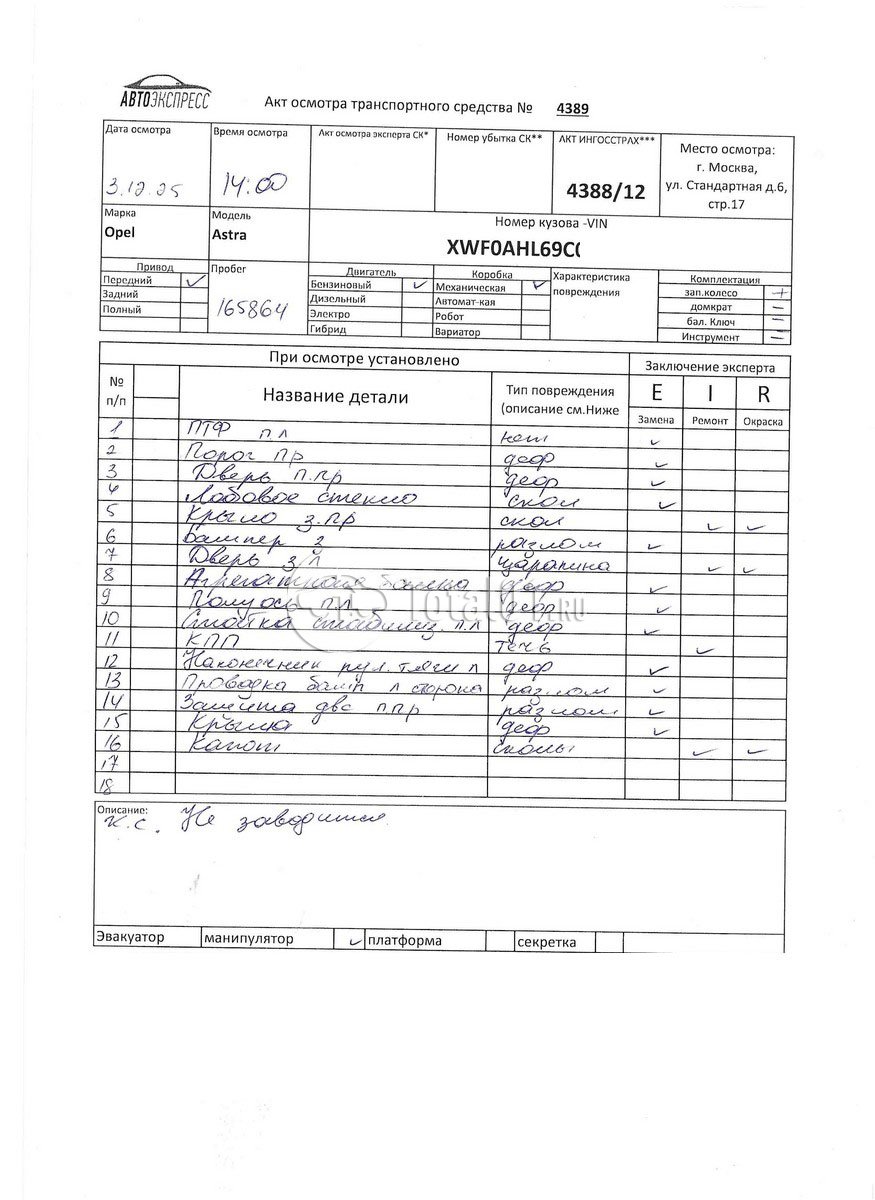 АВТОЭКСПРЕСС
Акт осмотра транспортного средства № 4389
Дата осмотра
3.12.25
Время осмотра
14:00
Акт осмотра эксперта СК*
Номер убытка СК**
АКТ ИНГОССТРАХ***
4388/12
Место осмотра:
г. Москва,
ул. Стандартная д.6,
стр.17
Марка
Opel
Модель
Astra
Номер кузова -VIN
XWF0AHL69C(
Привод
Передний ✓
Задний
Полный
Пробег
165864
Двигатель
Бензиновый ✓
Дизельный
Электро
Гибрид
Коробка
Механическая ✓
Автомат-кая
Робот
Вариатор
Характеристика
повреждения
Комплектация
зап.колесо +
домкрат –
бал. Ключ –
Инструмент –
При осмотре установлено
Заключение эксперта
№
п/п
Название детали
Тип повреждения
(описание см.Ниже
E I R
Замена Ремонт Окраска
1 ПТФ п л нет ✓
2 Порог пр деф ✓
3 Дверь п.пр деф ✓
4 Лобовое стекло скол ✓
5 Крыло з.пр скол ✓ ✓
6 Бампер 2 разлом ✓
7 Дверь з л царапина ✓ ✓
8 деф ✓
9 Полуось п.л деф ✓
10 Стойка стабилиз. п.л деф ✓
11 КПП течь ✓
12 Наконечник рул.тяги л деф ✓
13 Проводка бамп л сторона разлом ✓
14 Защита двс п.пр разлом ✓
15 Крыша деф ✓
16 Капот сколы ✓ ✓
17
18
Описание:
к.с. Не заводится
Эвакуатор манипулятор ✓ платформа секретка
TotalK.RU